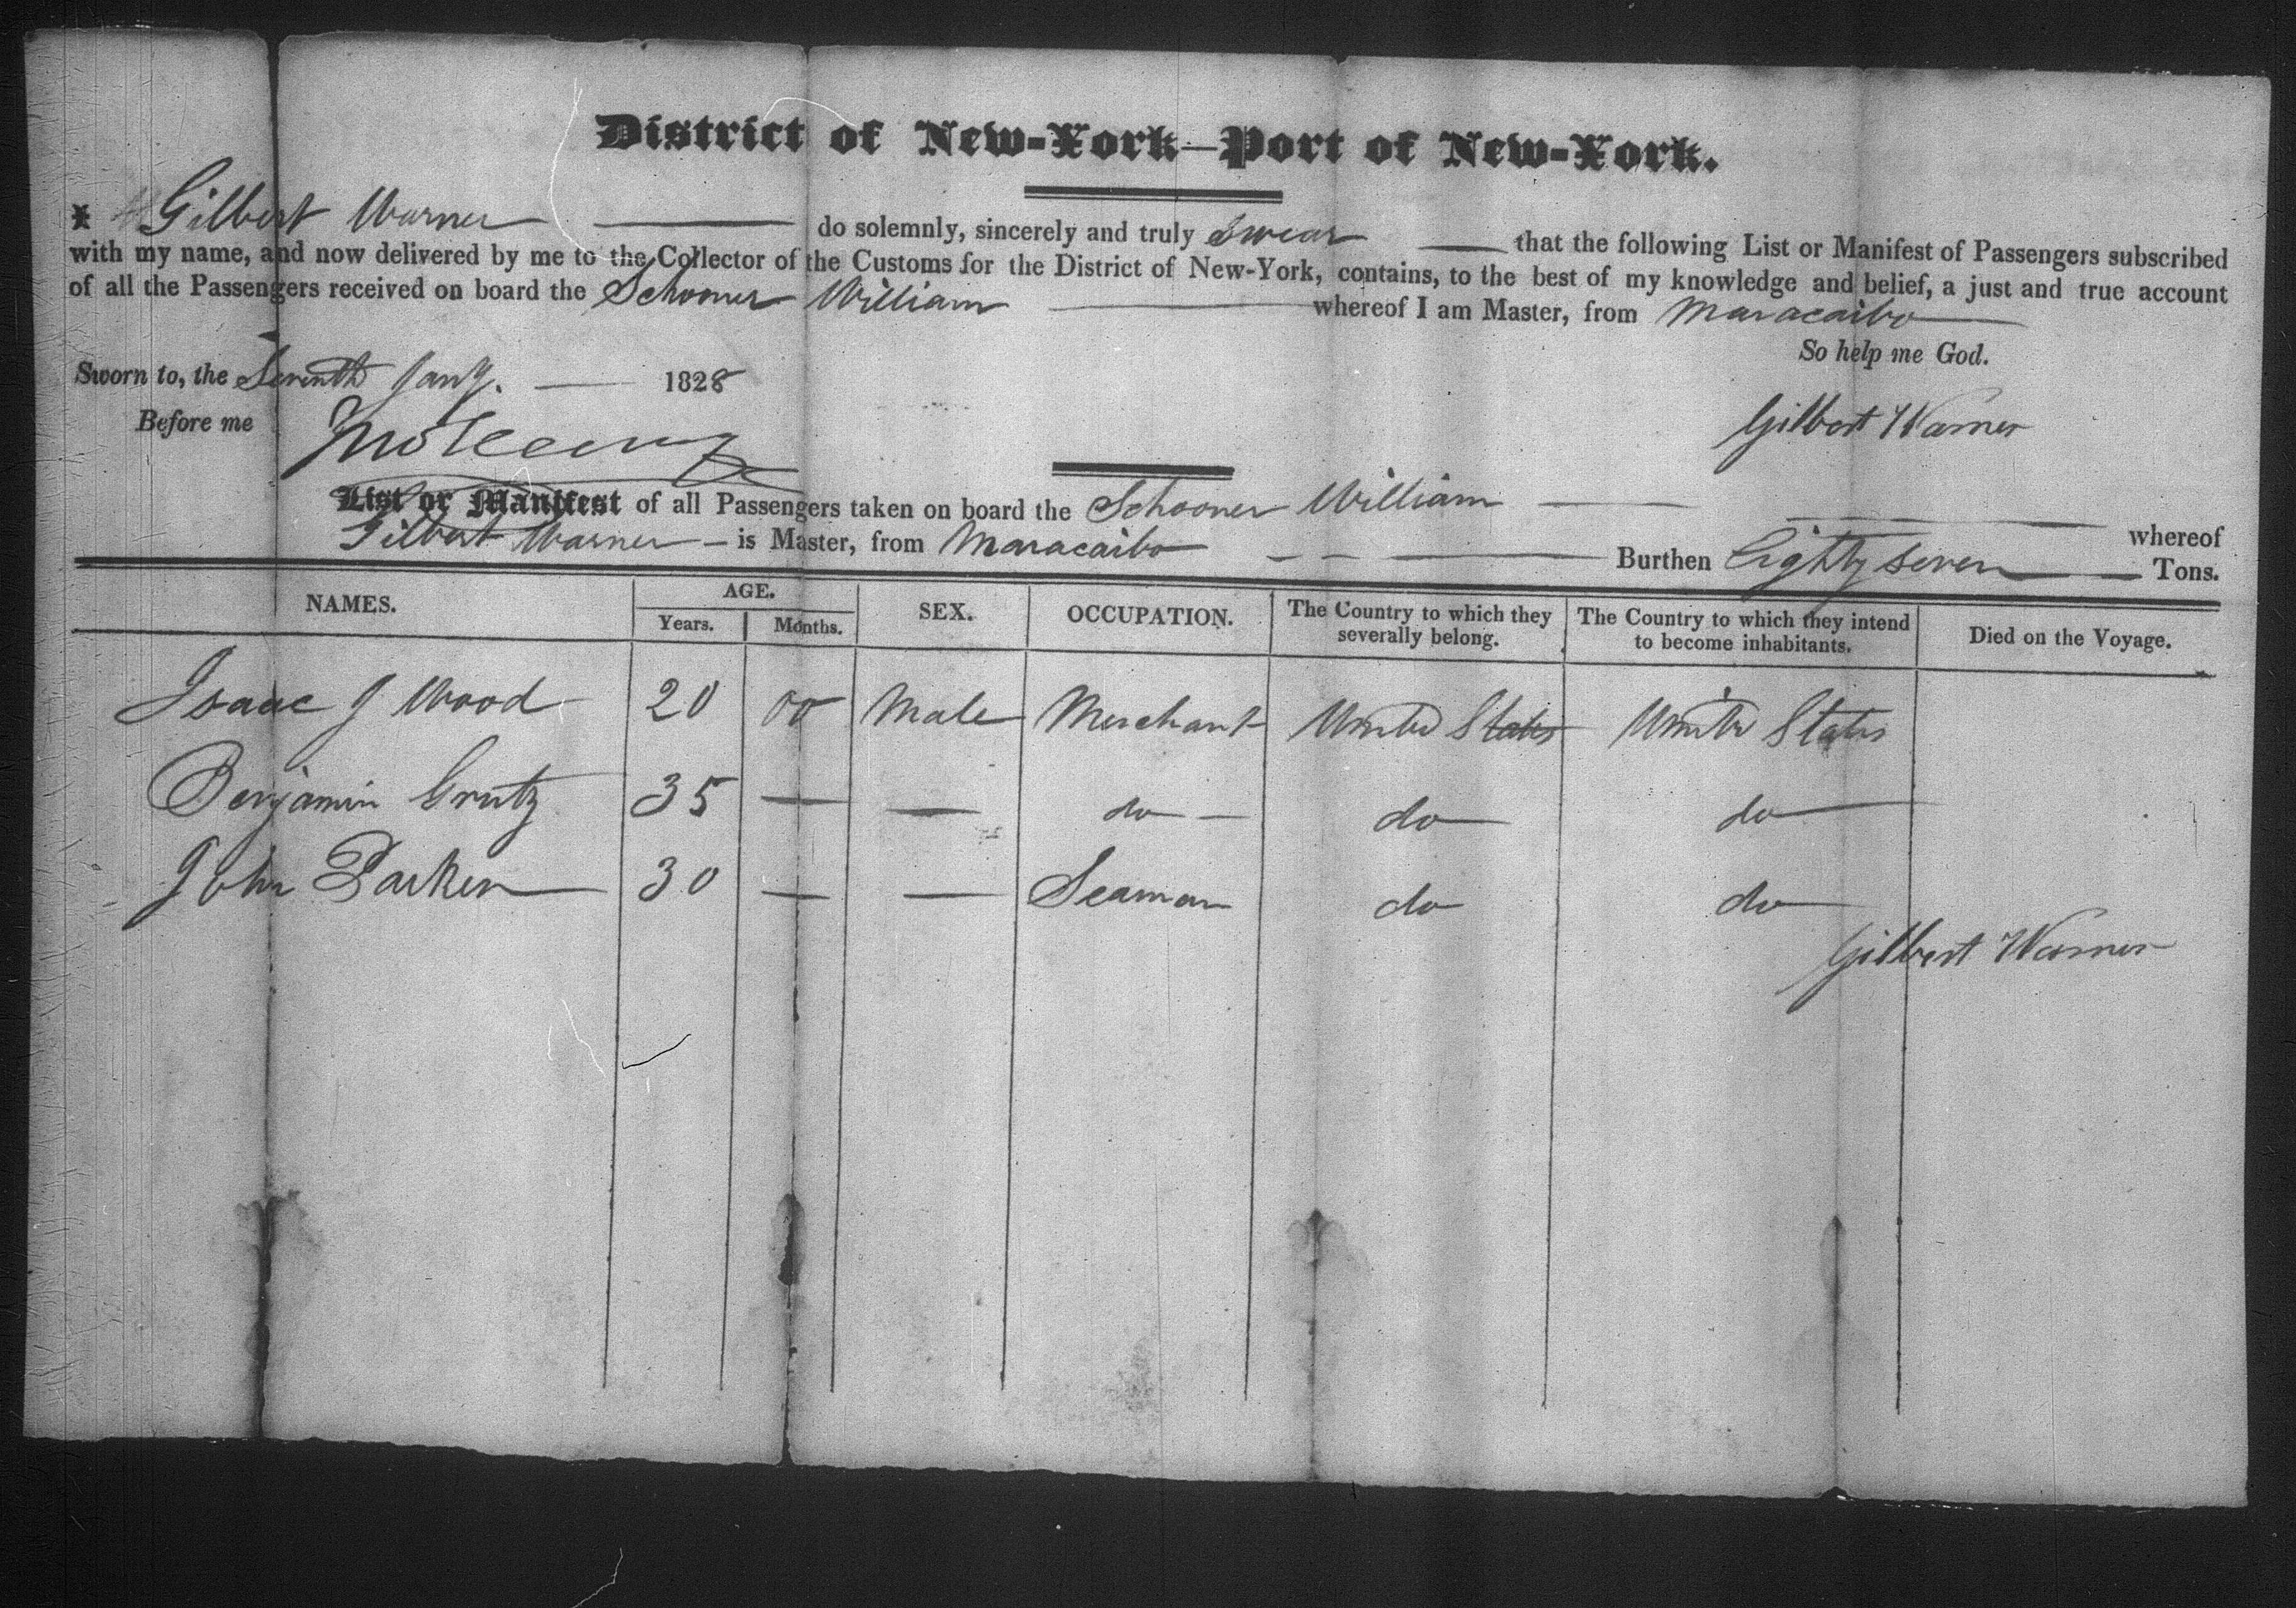 District of New-York—Port of New-York.
I Gilbert Warner do solemnly, sincerely and truly Swear that the following List or Manifest of Passengers subscribed
with my name, and now delivered by me to the Collector of the Customs for the District of New-York, contains, to the best of my knowledge and belief, a just and true account
of all the Passengers received on board the Schooner William whereof I am Master, from Maracaibo
So help me God.
Sworn to, the Seventh Jany. 1828
Before me
Gilbert Warner
List or Manifest of all Passengers taken on board the Schooner William whereof
Gilbert Warner is Master, from Maracaibo Burthen Eighty seven Tons.
NAMES. AGE. Years. Months. SEX. OCCUPATION. The Country to which they severally belong. The Country to which they intend to become inhabitants. Died on the Voyage.
Isaac J Wood 20 00 Male Merchant United States United States
Benjamin 35 — — do — do do
John Parker 30 — — Seaman do do
Gilbert Warner